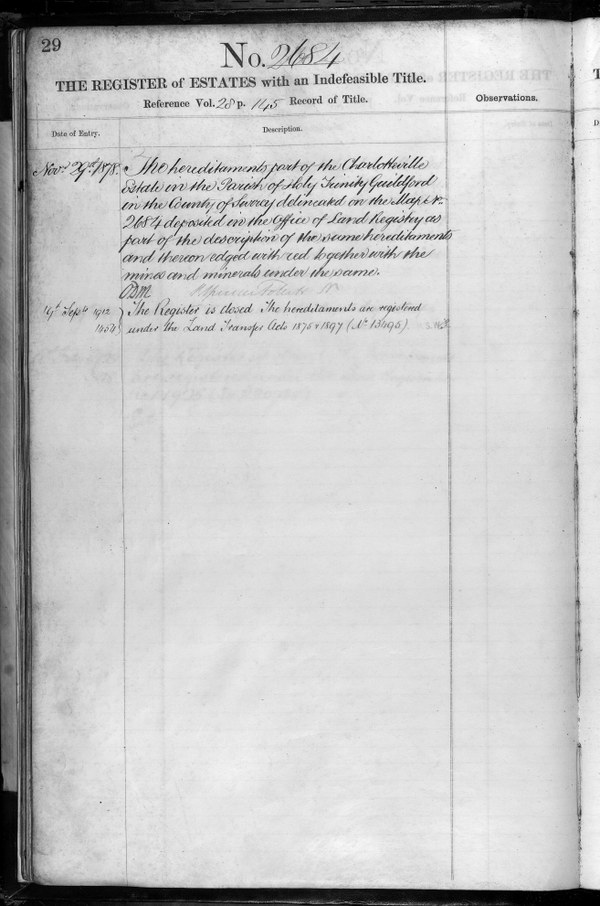 29
No. 2684
THE REGISTER of ESTATES with an Indefeasible Title.
Reference Vol. 28 p. 145 Record of Title.
Observations.
Date of Entry.
Description.
Novr. 29th 1878.
The hereditaments part of the Charlotteville
Estate in the Parish of Holy Trinity Guildford
in the County of Surrey delineated on the Map No.
2684 deposited in the Office of Land Registry as
part of the description of the same hereditaments
and thereon edged with red together with the
mines and minerals under the same.
19th Septr 1912
The Register is closed The hereditaments are registered
under the Land Transfer Acts 1875 & 1897 (No 13495)